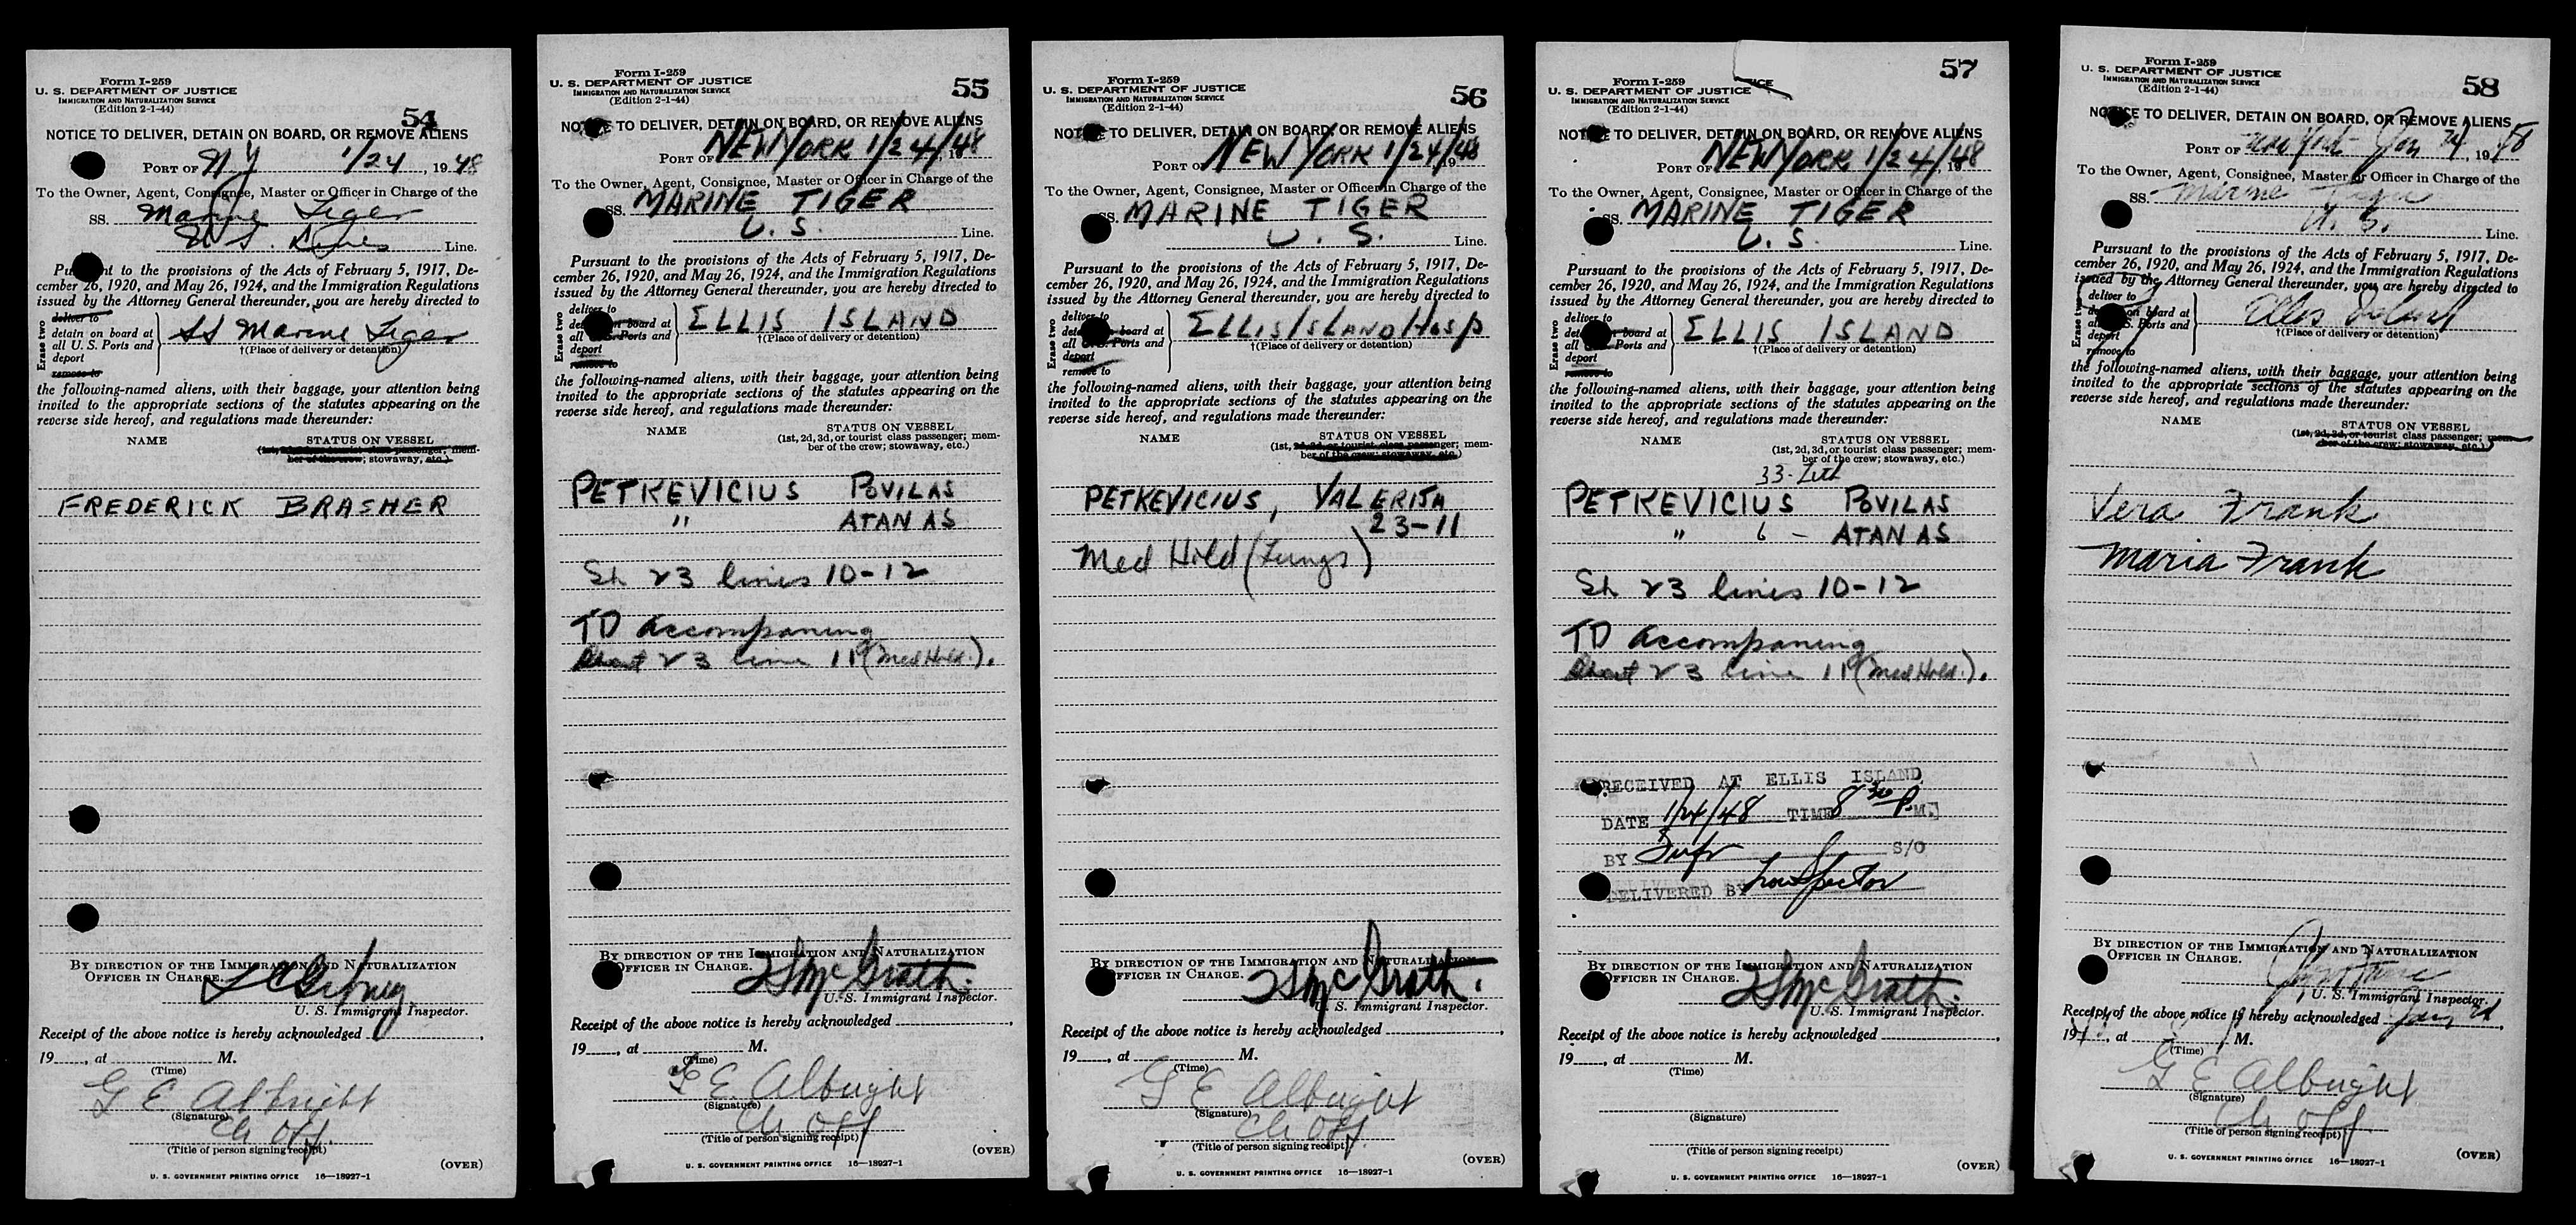 Form I-259
U. S. DEPARTMENT OF JUSTICE
IMMIGRATION AND NATURALIZATION SERVICE
(Edition 2-1-44)
54
NOTICE TO DELIVER, DETAIN ON BOARD, OR REMOVE ALIENS
PORT OF N Y 1/24, 1948
To the Owner, Agent, Consignee, Master or Officer in Charge of the
SS. Marine Tiger
U S. Lines Line.
nt to the provisions of the Acts of February 5, 1917, De-
cember 26, 1920, and May 26, 1924, and the Immigration Regulations
issued by the Attorney General thereunder, you are hereby directed to
Erase two
deliver to
detain on board at
all U. S. Ports and
deport
remove to
SS Marine Tiger
†(Place of delivery or detention)
the following-named aliens, with their baggage, your attention being
invited to the appropriate sections of the statutes appearing on the
reverse side hereof, and regulations made thereunder:
NAME STATUS ON VESSEL
(1st, 2d, 3d, or tourist class passenger; mem-
ber of the crew; stowaway, etc.)
FREDERICK BRASHER
BY DIRECTION OF THE IMMIGRATION AND NATURALIZATION
OFFICER IN CHARGE.
U. S. Immigrant Inspector.
Receipt of the above notice is hereby acknowledged
19, at M.
(Time)
G E Albright
(Signature)
Ch Off.
(Title of person signing receipt)
(OVER)
U. S. GOVERNMENT PRINTING OFFICE 16—18927-1
Form I-259
U. S. DEPARTMENT OF JUSTICE
IMMIGRATION AND NATURALIZATION SERVICE
(Edition 2-1-44)
55
NOTICE TO DELIVER, DETAIN ON BOARD, OR REMOVE ALIENS
PORT OF NEW YORK 1/24/48
To the Owner, Agent, Consignee, Master or Officer in Charge of the
SS. MARINE TIGER
U. S. Line.
Pursuant to the provisions of the Acts of February 5, 1917, De-
cember 26, 1920, and May 26, 1924, and the Immigration Regulations
issued by the Attorney General thereunder, you are hereby directed to
Erase two
deliver to
on board at
all Ports and
deport
remove to
ELLIS ISLAND
†(Place of delivery or detention)
the following-named aliens, with their baggage, your attention being
invited to the appropriate sections of the statutes appearing on the
reverse side hereof, and regulations made thereunder:
NAME STATUS ON VESSEL
(1st, 2d, 3d, or tourist class passenger; mem-
ber of the crew; stowaway, etc.)
PETKEVICIUS POVILAS
" ATANAS
Sh 23 lines 10-12
TD accompaning
Sheet 23 line 11 (Med Hold).
BY DIRECTION OF THE IMMIGRATION AND NATURALIZATION
OFFICER IN CHARGE.
McGrath.
U. S. Immigrant Inspector.
Receipt of the above notice is hereby acknowledged
19, at M.
(Time)
G E. Albright
(Signature)
Ch Off
(Title of person signing receipt)
(OVER)
U. S. GOVERNMENT PRINTING OFFICE 16—18927-1
Form I-259
U. S. DEPARTMENT OF JUSTICE
IMMIGRATION AND NATURALIZATION SERVICE
(Edition 2-1-44)
56
NOTICE TO DELIVER, DETAIN ON BOARD, OR REMOVE ALIENS
PORT OF NEW YORK 1/24/48
To the Owner, Agent, Consignee, Master or Officer in Charge of the
SS. MARINE TIGER
U. S. Line.
Pursuant to the provisions of the Acts of February 5, 1917, De-
cember 26, 1920, and May 26, 1924, and the Immigration Regulations
issued by the Attorney General thereunder, you are hereby directed to
Erase two
deliver to
board at
all Ports and
deport
remove to
ELLIS ISLAND Hosp
†(Place of delivery or detention)
the following-named aliens, with their baggage, your attention being
invited to the appropriate sections of the statutes appearing on the
reverse side hereof, and regulations made thereunder:
NAME STATUS ON VESSEL
(1st, 2d, 3d, or tourist class passenger; mem-
ber of the crew; stowaway, etc.)
PETKEVICIUS, VALERIJA
23-11
Med Hold (Lungs)
BY DIRECTION OF THE IMMIGRATION AND NATURALIZATION
OFFICER IN CHARGE.
McGrath.
U. S. Immigrant Inspector.
Receipt of the above notice is hereby acknowledged
19, at M.
(Time)
G E Albright
(Signature)
Ch Off.
(Title of person signing receipt)
(OVER)
U. S. GOVERNMENT PRINTING OFFICE 16—18927-1
Form I-259
U. S. DEPARTMENT OF JUSTICE
IMMIGRATION AND NATURALIZATION SERVICE
(Edition 2-1-44)
57
NOTICE TO DELIVER, DETAIN ON BOARD, OR REMOVE ALIENS
PORT OF NEW YORK 1/24/48
To the Owner, Agent, Consignee, Master or Officer in Charge of the
SS. MARINE TIGER
U. S. Line.
Pursuant to the provisions of the Acts of February 5, 1917, De-
cember 26, 1920, and May 26, 1924, and the Immigration Regulations
issued by the Attorney General thereunder, you are hereby directed to
Erase two
deliver to
board at
all Ports and
deport
remove to
ELLIS ISLAND
†(Place of delivery or detention)
the following-named aliens, with their baggage, your attention being
invited to the appropriate sections of the statutes appearing on the
reverse side hereof, and regulations made thereunder:
NAME STATUS ON VESSEL
(1st, 2d, 3d, or tourist class passenger; mem-
ber of the crew; stowaway, etc.)
33-Lith
PETKEVICIUS POVILAS
" 6 - ATANAS
Sh 23 lines 10-12
TD accompaning
Sheet 23 line 11 (Med Hold.).
RECEIVED AT ELLIS ISLAND
DATE 1/24/48 TIME 8 30 P.M.
BY S/O
DELIVERED BY
BY DIRECTION OF THE IMMIGRATION AND NATURALIZATION
OFFICER IN CHARGE.
McGrath.
U. S. Immigrant Inspector.
Receipt of the above notice is hereby acknowledged
19, at M.
(Time)
(Signature)
(Title of person signing receipt)
(OVER)
U. S. GOVERNMENT PRINTING OFFICE 16—18927-1
Form I-259
U. S. DEPARTMENT OF JUSTICE
IMMIGRATION AND NATURALIZATION SERVICE
(Edition 2-1-44)
58
NOTICE TO DELIVER, DETAIN ON BOARD, OR REMOVE ALIENS
PORT OF New York Jan 24, 1948
To the Owner, Agent, Consignee, Master or Officer in Charge of the
SS. Marine Tiger
U. S. Line.
Pursuant to the provisions of the Acts of February 5, 1917, De-
cember 26, 1920, and May 26, 1924, and the Immigration Regulations
issued by the Attorney General thereunder, you are hereby directed to
Erase two
deliver to
on board at
all S. Ports and
deport
remove to
Ellis Island
†(Place of delivery or detention)
the following-named aliens, with their baggage, your attention being
invited to the appropriate sections of the statutes appearing on the
reverse side hereof, and regulations made thereunder:
NAME STATUS ON VESSEL
(1st, 2d, 3d, or tourist class passenger; mem-
ber of the crew; stowaway, etc.)
Vera Frank
Maria Frank
BY DIRECTION OF THE IMMIGRATION AND NATURALIZATION
OFFICER IN CHARGE.
U. S. Immigrant Inspector.
Receipt of the above notice is hereby acknowledged Jan 24
19, at M.
(Time)
G E Albright
(Signature)
Ch Off
(Title of person signing receipt)
(OVER)
U. S. GOVERNMENT PRINTING OFFICE 16—18927-1